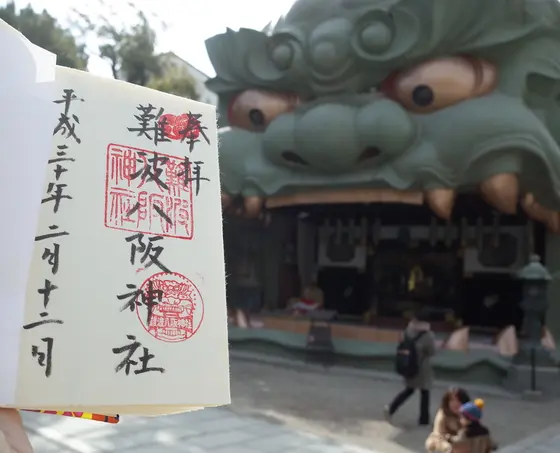 奉拝
難波八阪神社
平成三十年二月十二日
難波八阪神社